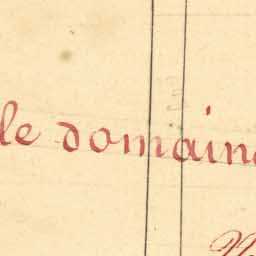 le domain